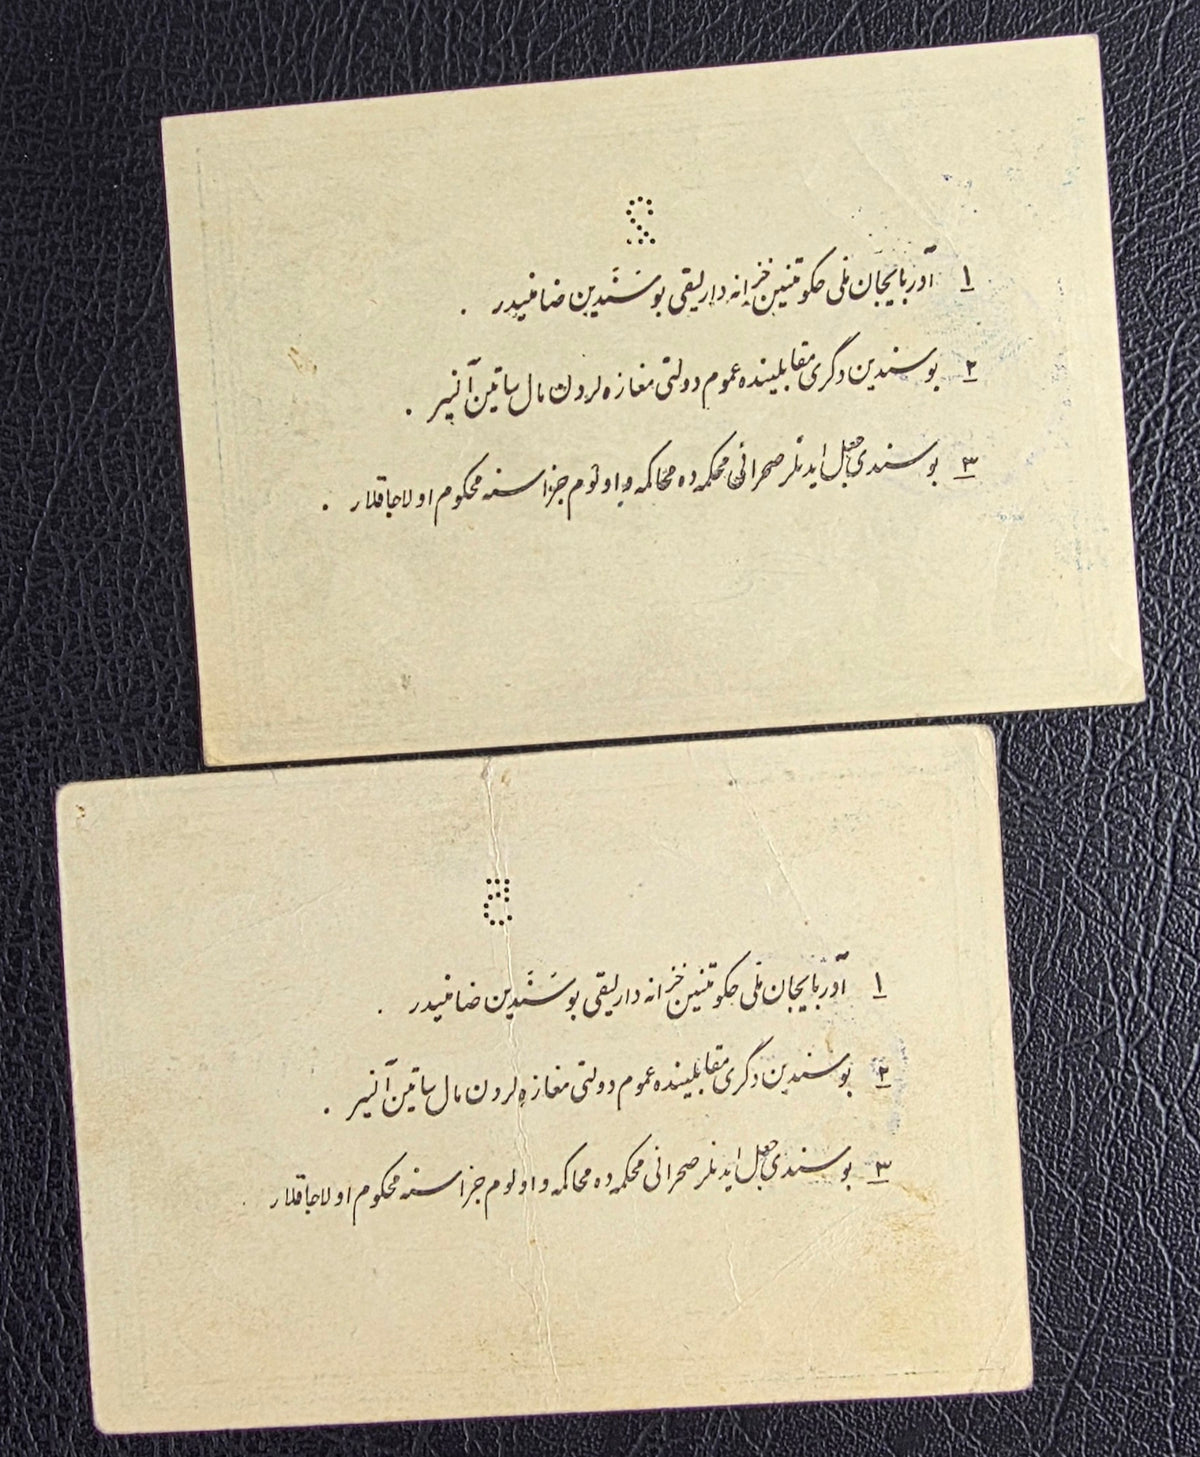 2
۱ آذربایجان ملی حکومتینین خزانه دارلیقی بو سَنَدین ضامنیدر .
۲ بو سندین دگری مقابلینده عموم دولتی مغازه لردن مال ساتین آلنیر .
۳ بو سندی جعل ایدنلر صحرائی محکمه ده محاکمه و اولوم جزاسنه محکوم اولاجاقلار .
5
۱ آذربایجان ملی حکومتینین خزانه دارلیقی بو سَنَدین ضامنیدر .
۲ بو سندین دگری مقابلینده عموم دولتی مغازه لردن مال ساتین آلنیر .
۳ بو سندی جعل ایدنلر صحرائی محکمه ده محاکمه و اولوم جزاسنه محکوم اولاجاقلار .